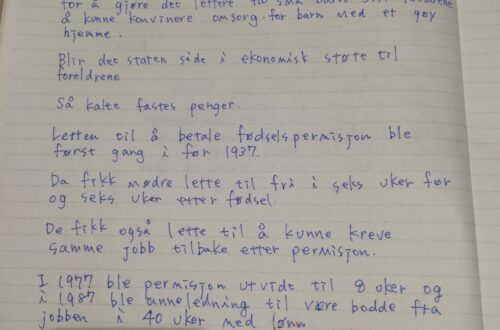 for å gjøre det lettere for små barn
å kunne konvinere omsorg for barn med et gøy
hjemme.
Blir det staten side i ekonomisk støte til
foreldrene
Så kalte fastes penger.
Letten til å betale fødselspermisjon ble
først gang i før 1937.
Da fikk mødre lette til fri i seks uker før
og seks uker etter fødsel.
De fikk også lette til å kunne kreve
samme jobb tilbake etter permisjon.
I 1977 ble permisjon utvidt til 8 uker og
i 1987 ble anneledning til være bodde fra
jobben i 40 uker med lønn